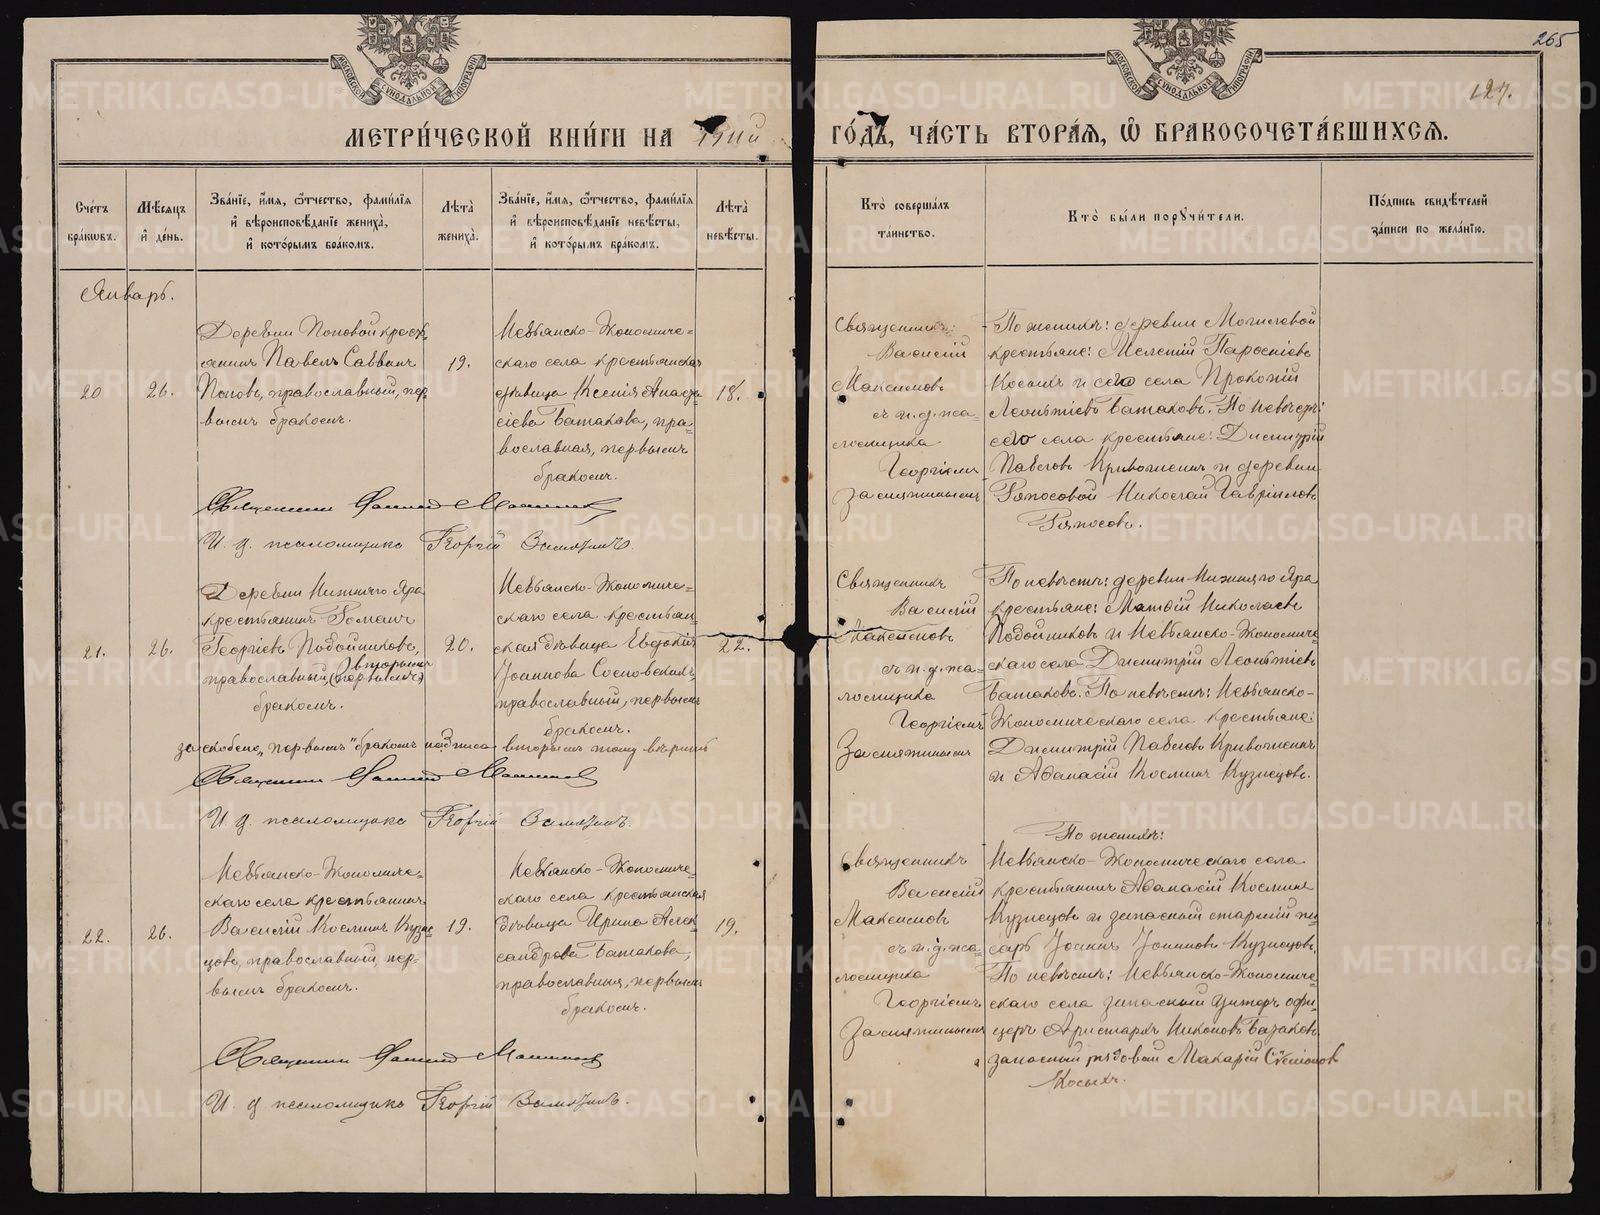 265
127.
МОСКОВСКОЙ СѴНОДАЛЬНОЙ ТИПОГРАФІИ
МОСКОВСКОЙ СѴНОДАЛЬНОЙ ТИПОГРАФІИ
МЕТРИ́ЧЕСКОЙ КНИ́ГИ НА 1911й ГО́ДЪ, ЧА́СТЬ ВТОРА́Я, Ѽ БРАКОСОЧЕТА́ВШИХСЯ.
Сче́тъ бра́кѡвъ.
Мѣ́сяцъ и҆ де́нь.
Зва́нїе, и҆́мя, ѻ҆́тчество, фами́лїя и҆ вѣроисповѣ́данїе жениха̀, и҆ кото́рымъ бра́комъ.
Лѣ́та жениха̀.
Зва́нїе, и҆́мя, ѻ҆́тчество, фами́лїя и҆ вѣроисповѣ́данїе невѣ́сты, и҆ кото́рымъ бра́комъ.
Лѣ́та невѣ́сты.
Кто̀ соверша́лъ та́инство.
Кто̀ бы́ли порꙋчи́тели.
По́дпись свидѣ́телей за́писи по жела́нїю.
Январь.
20
26.
Деревни Поповой крестьянинъ Павелъ Саввинъ
Поповъ, православный, пер
вымъ бракомъ.
19.
Невьянско-Экономиче=
скаго села крестьянская
дѣвица Ксенія Анаста
сіева Батакова, пра=
вославная, первымъ
бракомъ.
18.
Священникъ
Василій
Максимовъ
съ и. д. пса
ломщика
Георгіемъ
Замятинымъ
По женихѣ: деревни Могилевой
крестьяне: Мелетій
Косыхъ и сего села Прокопій
Леонтіевъ Батаковъ. По невѣстѣ:
сего села крестьяне: Димитрій
Павловъ Кривоженинъ и деревни
Ряпосовой Николай Гавріиловъ
Ряпосовъ.
Священникъ Василій Максимовъ
И. д. псаломщика Георгій Замятинъ.
21.
26.
Деревни Нижняго Яра
крестьянинъ Романъ
Георгіевъ Подойниковъ,
православный, (первымъ) вторымъ
бракомъ.
20.
Невьянско-Экономиче=
скаго села крестьян=
ская дѣвица Евдокія
Іоаннова Сосновскихъ,
православный, первымъ
бракомъ.
22.
Священникъ
Василій
Максимовъ
съ и. д. пса=
ломщика
Георгіемъ
Замятинымъ
По невѣстѣ: деревни Нижняго Яра
крестьяне: Матѳій Николаевъ
Подойниковъ и Невьянско-Экономиче=
скаго села Димитрій Леонтіевъ
Батаковъ. По невѣстѣ: Невьянско-
Экономическаго села крестьяне:
Димитрій Павловъ Кривоженинъ
и Аѳанасій Косминъ Кузнецовъ.
за скобене „первымъ" бракомъ надписа вторымъ тому вѣрить
Священникъ Василій Максимовъ
И. д. псаломщика Георгій Замятинъ.
22.
26.
Невьянско-Экономиче=
скаго села крестьянинъ
Василій Косминъ Кузне=
цовъ, православный, пер=
вымъ бракомъ.
19.
Невьянско-Экономиче=
скаго села крестьянская
дѣвица Ирина Алек
сандрова Батакова,
православная, первымъ
бракомъ.
19.
Священникъ
Василій
Максимовъ
съ и. д. пса=
ломщика
Георгіемъ
Замятинымъ
По женихѣ:
Невьянско-Экономическаго села
крестьянинъ Аѳанасій Косминъ
Кузнецовъ и запасный старшій пи
сарь Іоаннъ Іоанновъ Кузнецовъ.
По невѣстѣ: Невьянско-Экономиче=
скаго села запасный унтеръ офи
церъ Аристархъ Никоновъ Батаковъ
запасный рядовой Макарій Стеѳановъ
Косыхъ.
Священникъ Василій Максимовъ
И. д. псаломщикъ Георгій Замятинъ.
METRIKI.GASO-URAL.RU